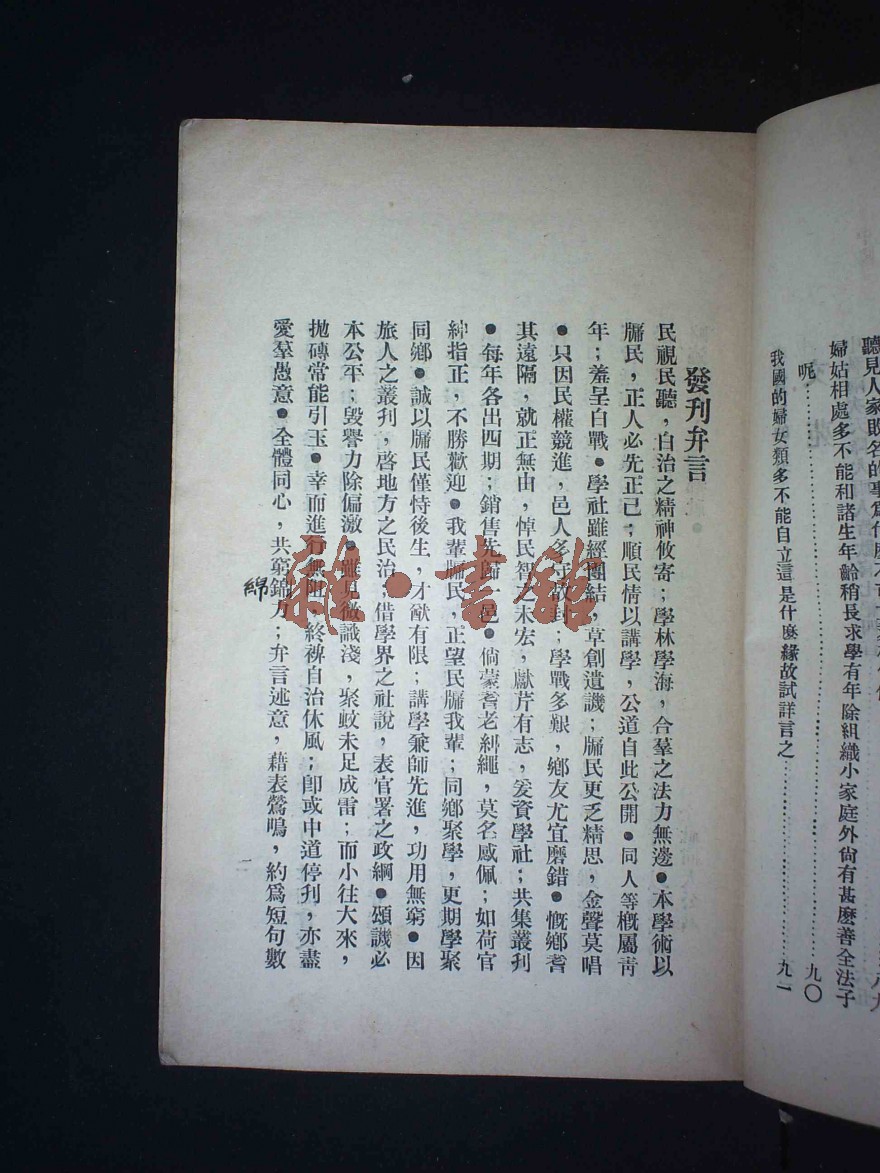 聽見人家敗名的事爲什麼不可
婦姑相處多不能和諸生年齡稍長求學有年除組織小家庭外尙有甚麽善全法子
呢……………………九〇
我國的婦女類多不能自立這是什麽緣故試詳言之……………九一
發刊弁言
民視民聽，自治之精神攸寄；學林學海，合羣之法力無邊●本學術以
牖民，正人必先正己；順民情以講學，公道自此公開●同人等槪屬靑
年；羞呈白戰●學社雖經團結，草創遺譏；牖民更乏精思，金聲莫唱
●只因民權競進，邑人多故封；學戰多艱，鄉友尤宜磨錯●慨鄉耆
其遠隔，就正無由，悼民智之未宏，獻芹有志，爰資學社；共集叢刊
●每年各出四期；銷售先歸一邑●倘蒙耆老糾繩，莫名感佩；如荷官
紳指正，不勝歡迎●我輩牖民，正望民牖我輩；同鄉聚學，更期學聚
同鄉●誠以牖民僅恃後生，才猷有限；講學兼師先進，功用無窮●因
旅人之叢刊，啓地方之民治；借學界之社說，表官署之政綱●頌譏必
本公平；毀譽力除偏激●雖見微識淺，聚蚊未足成雷；而小往大來，
拋磚常能引玉●幸而進行無阻，終裨自治休風；卽或中道停刋，亦盡
愛羣愚意●全體同心，共窮錦力；弁言述意，藉表鶯鳴，約爲短句數
綿
雜·書館
二